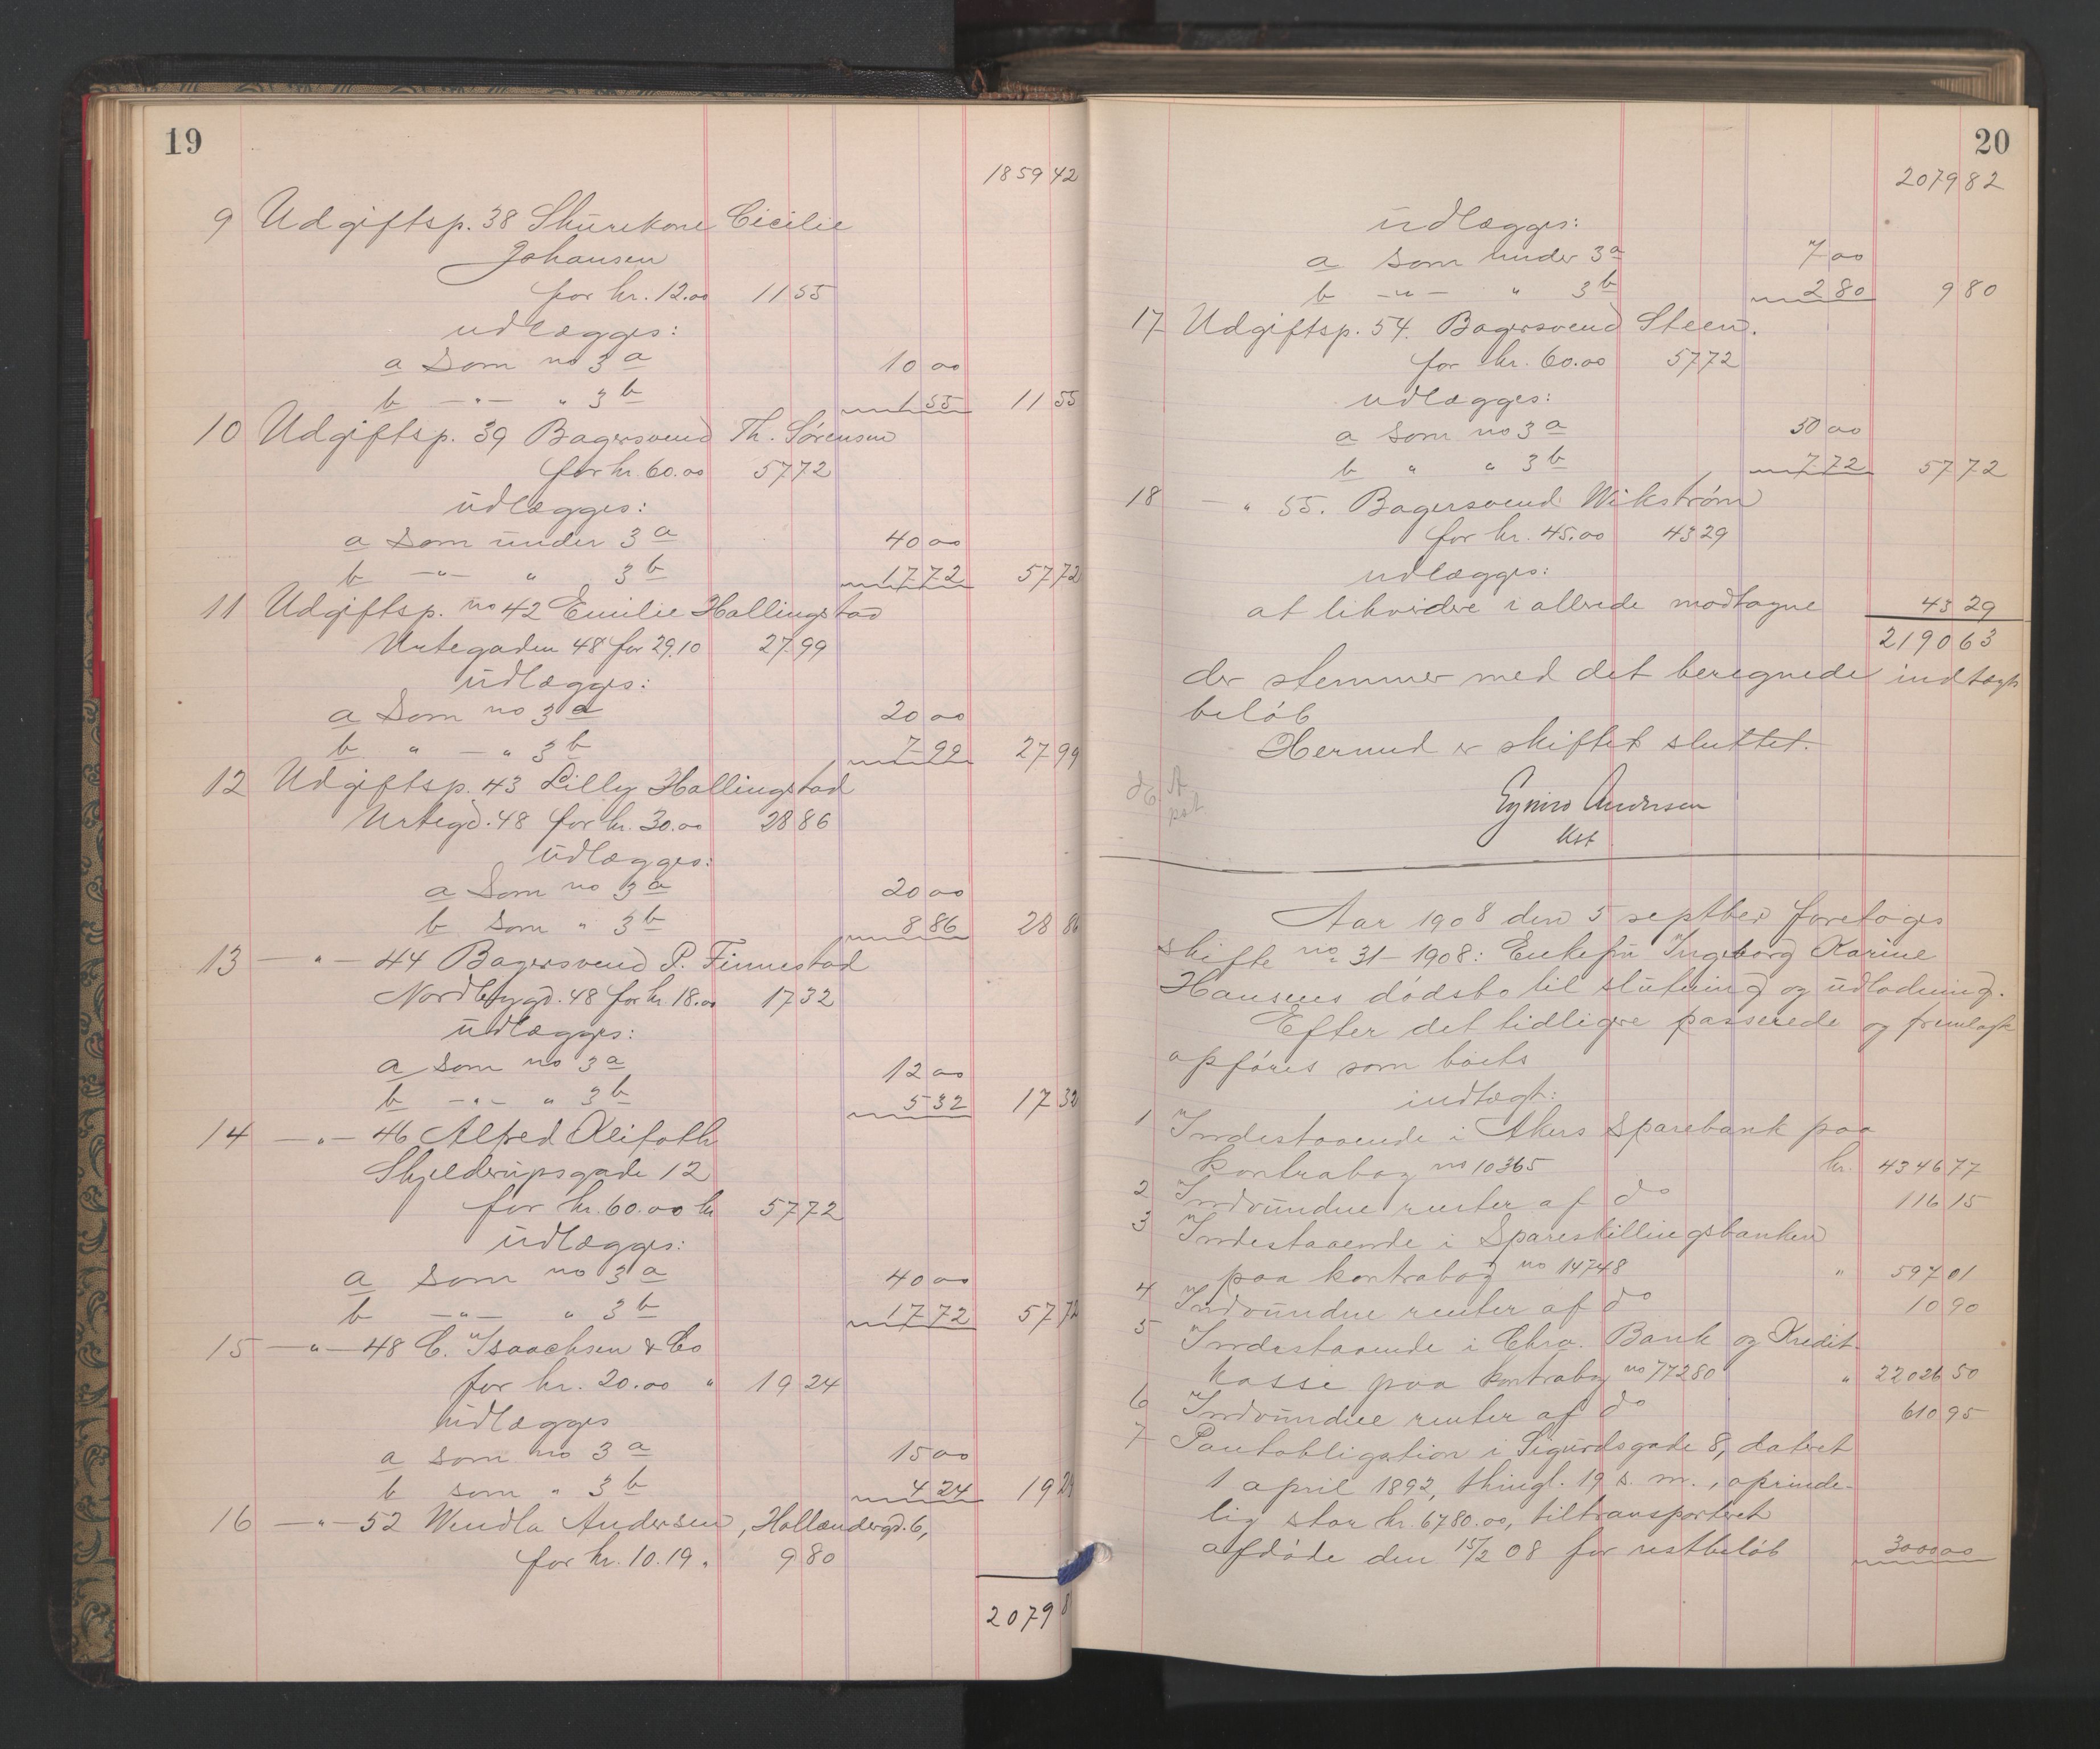 19
1859 42
9 Udgiftsp. 38 Skurekone Cicilie
Johansen
for kr. 12.00 11 55
udlægges:
a Som no 3 a 10 00
b -"- " 3 b 1 55 11 55
10 Udgiftsp. 39 Bagersvend Th. Sørensen
for kr. 60.00 57 72
udlægges:
a Som under 3 a 40 00
b -"- " 3 b 17 72 57 72
11 Udgiftsp. no 42 Emilie Hallingstad
Urtegaden 48 for 29.10 27 99
udlægges:
a Som no 3 a 20 00
b " - " 3 b 7 99 27 99
12 Udgiftsp. 43 Lilly Hallingstad
Urtegd. 48 for kr. 30.00 28 86
udlægges:
a Som no 3 a 20 00
b Som " 3 b 8 86 28 86
13 -"- 44 Bagersvend P. Finnestad
Nordbygd. 48 for kr 18.00 17 32
udlægges:
a Som no 3 a 12 00
b -"- " 3 b 5 32 17 32
14 -"- 46 Alfred
Skjelderupsgade 12
for kr. 60.00 kr 57 72
udlægges:
a Som no 3 a 40 00
b -"- " 3 b 17 72 57 72
15 -"- 48 C. Isaachsen & Co
for kr. 20.00 " 19 24
udlægges
a som no 3 a 15 00
b som " 3 b 4 24 19 24
16 -"- 52 Wendla Andersen, Hollændergd. 6,
for kr. 10.19 " 9 80
2079 8
20
2079 82
udlægges:
a som under 3 a 7 00
b -"- " 3 b 2 80 9 80
17 Udgiftsp. 54. Bagersvend Steen.
for kr. 60.00 57 72
udlægges:
a som no 3 a 50 00
b " " 3 b 7 72 57 72
18 - " 55. Bagersvend Wikstrøm
for kr. 45.00 43 29
udlægges:
at likvidere i allerede modtagne 43 29
2190 63
der stemmer med det beregnede indtægts
beløb
Hermed er skiftet sluttet.
Eyvind Andersen
Kst
Aar 1908 den 5 septber foretoges
skifte no. 31-1908: Enkefru Ingeborg Karine
Hansens dødsbo til slutning og udlodning.
Efter det tidligere passerede og fremlagte
opføres som boets
indtægt:
1 Indestaaende i Akers Sparebank paa
kontrabog no 10365 kr. 4346 77
2 Indvundne renter af do 116 15
3 Indestaaende i Spareskillingsbanken
paa kontrabog no 14748 " 597 01
4 Indvundne renter af do 10 90
5 Indestaaende i Chra. Bank og Kredit-
kasse paa kontrabog no 77280 " 22026 50
6 Indvundne renter af do 610 95
7 Pantobligation i Sigurdsgade 8, dateret
1 april 1892, thingl. 19 s. m., oprinde-
lig stor kr. 6780.00, tiltransporteret
afdøde den 15/2 08 for restbeløb 3000 00